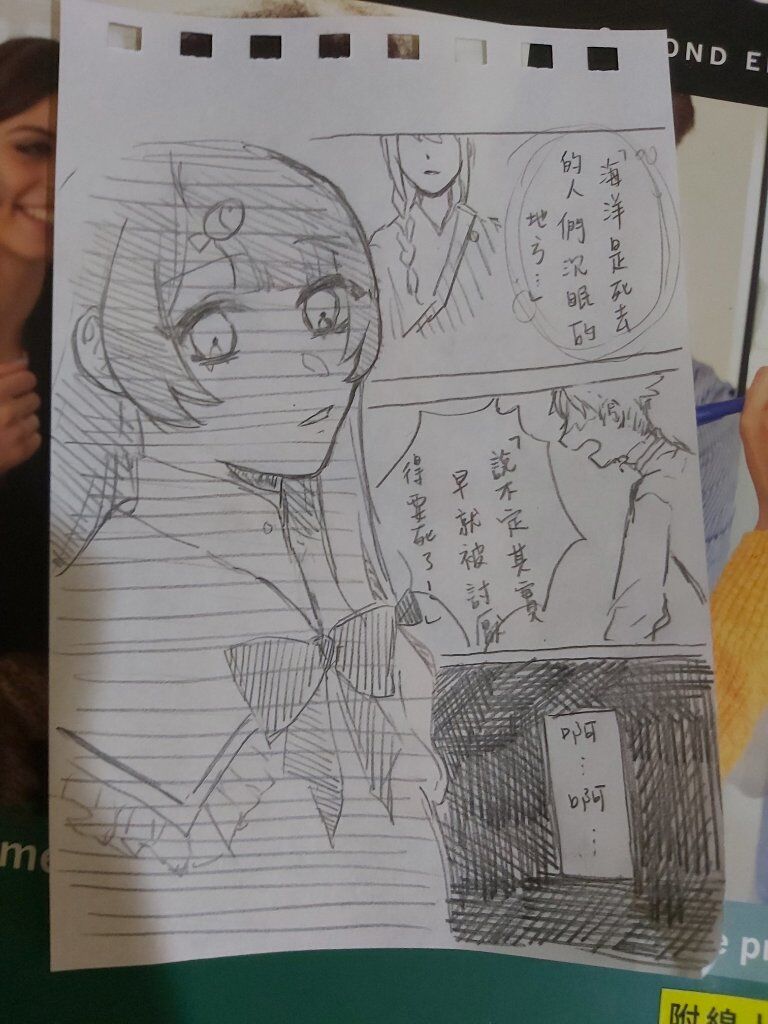 「海洋是死去
的人們沉眠的
地方…」
「說不定其實
早就被討厭
得要死了！」
啊…啊…
OND E
me
e p
附線上